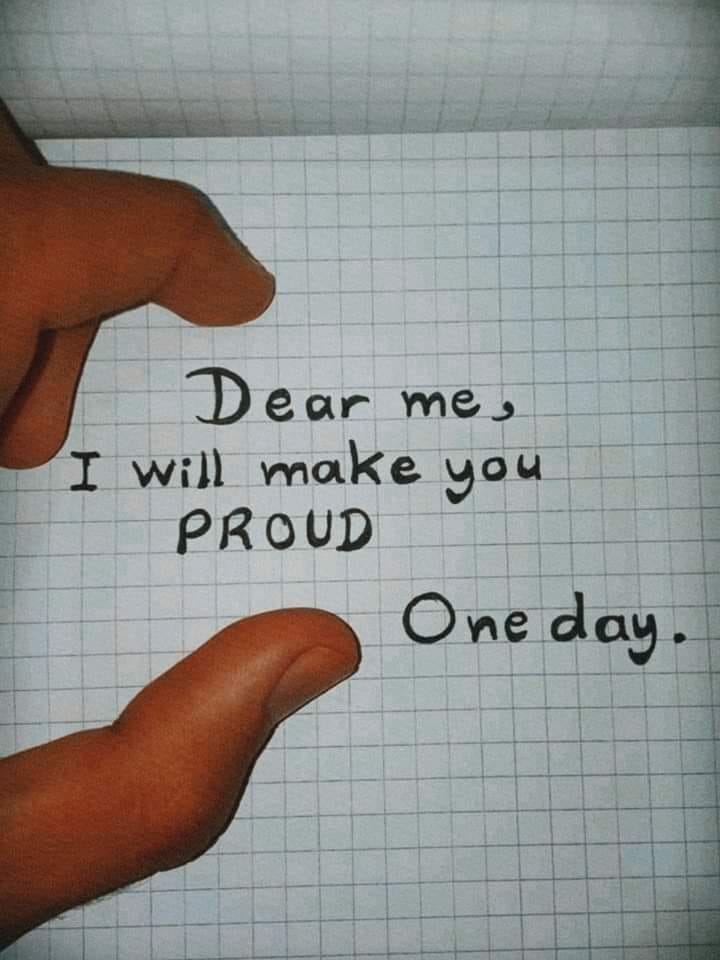 Dear me,
I will make you
PROUD
One day.